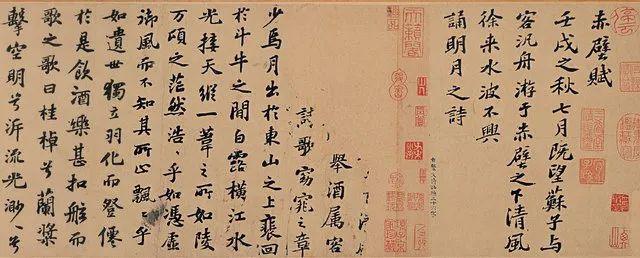 赤壁賦
壬戌之秋七月既望蘇子与
客汎舟游于赤壁之下清風
徐来水波不興
誦明月之詩
舉酒属客
歌窈窕之章
少焉月出於東山之上裵回
於斗牛之間白露橫江水
光接天縱一葦之所如陵
万頃之茫然浩乎如憑虛
御風而不知其所止飄〻乎
如遺世獨立羽化而登僊
於是飲酒樂甚扣舷而
歌之歌曰桂棹兮蘭槳
擊空明兮泝流光渺〻兮